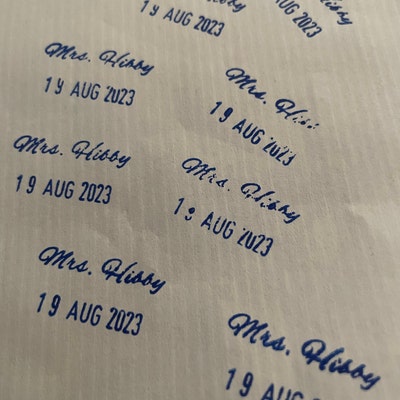 19 AUG 2023
AUG 2023
Mrs. Hibby
19 AUG 2023
Mrs.
19 AUG 2023
Mrs. Hibby
19 AUG 2023
Mrs. Hibby
19 AUG 2023
Mrs. Hibby
19 AUG 2023
Mrs. Hibby
19 AUG